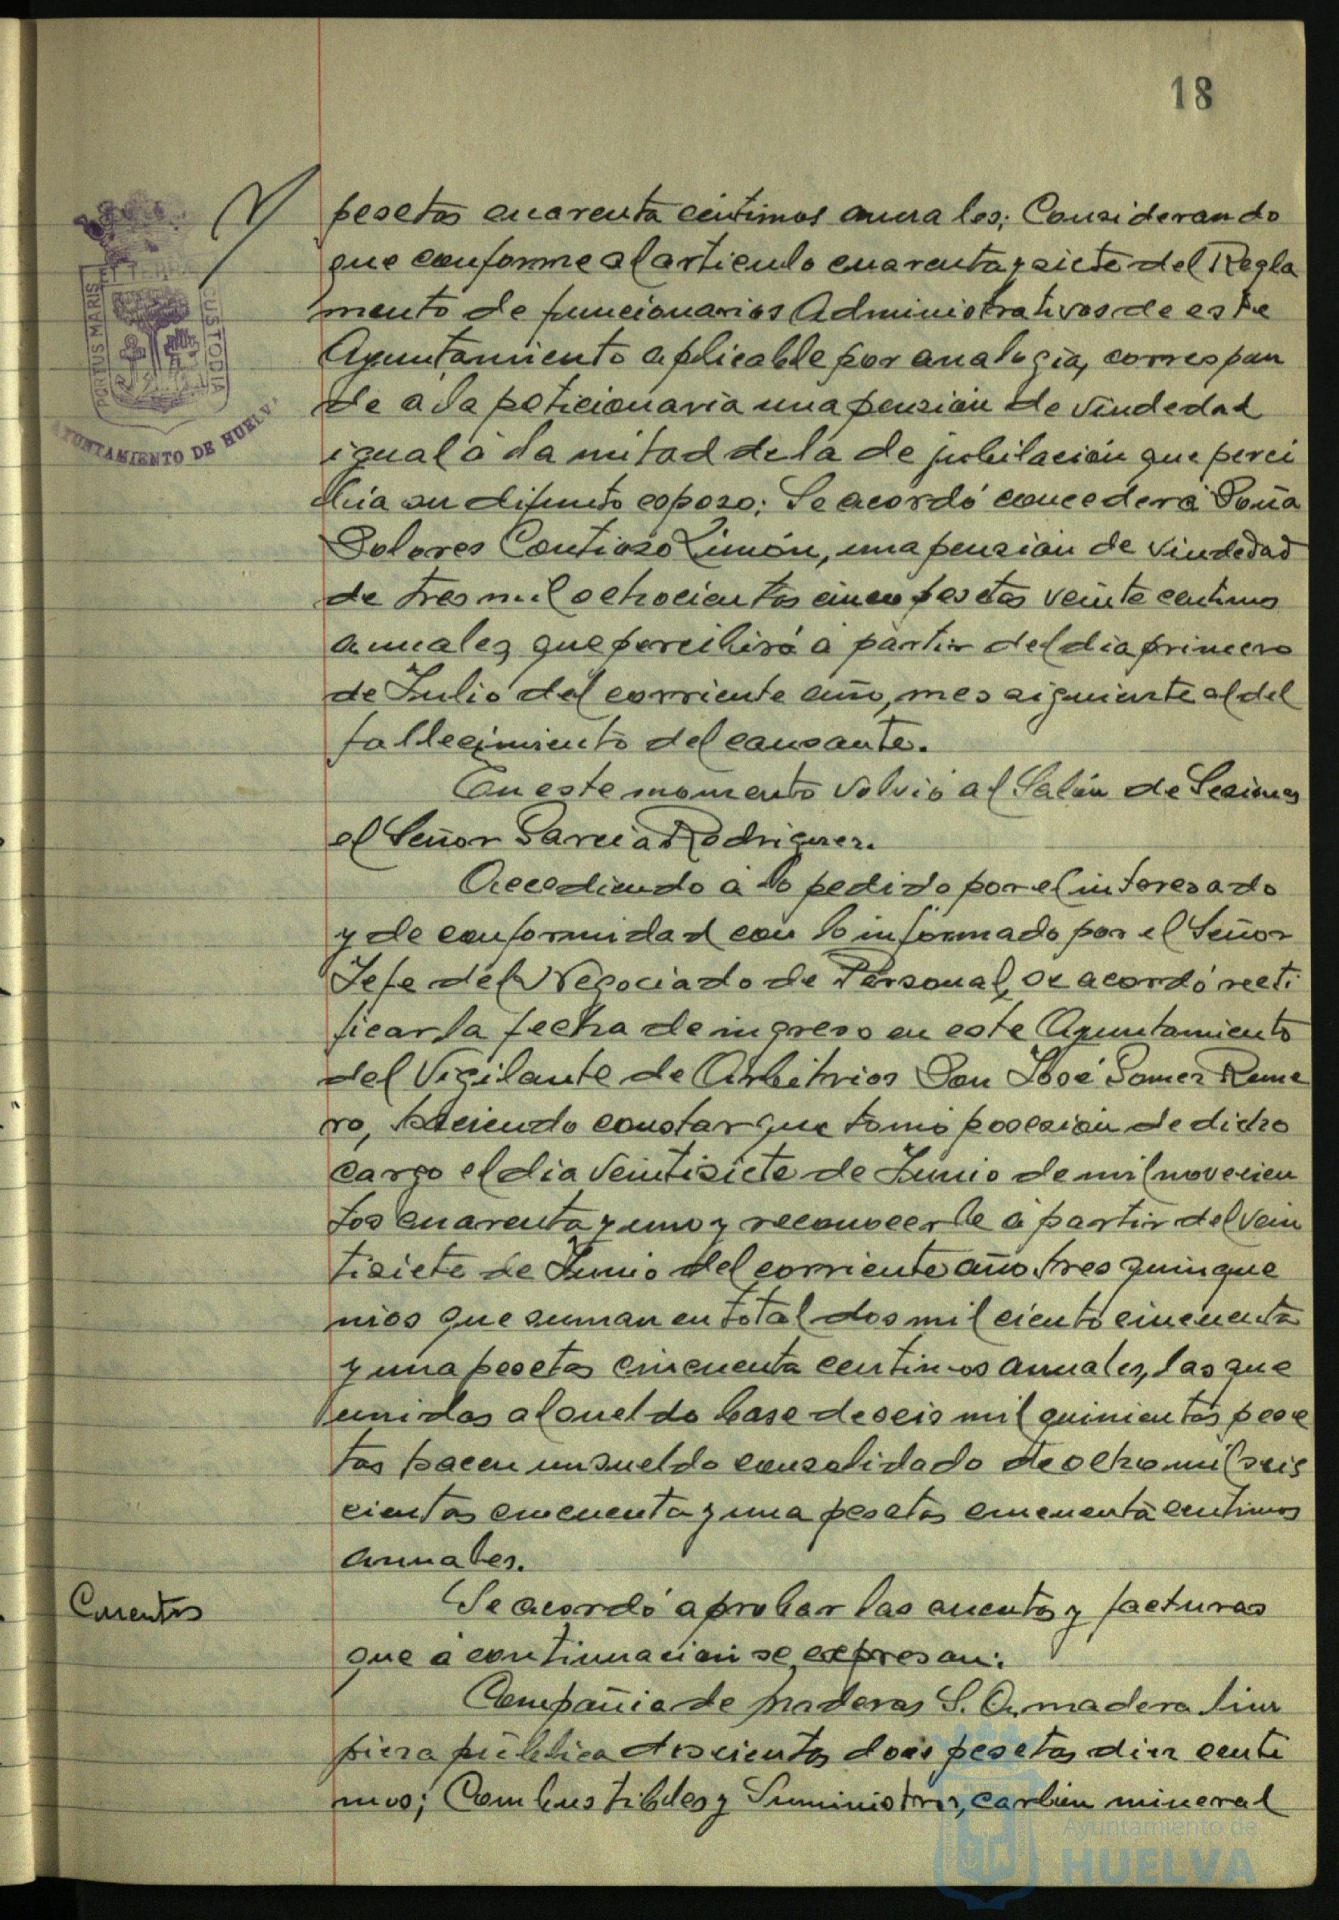 18
pesetas cuarenta céntimos anuales; Considerando
que conforme al articulo cuarenta y siete del Regla
mento de funcionarios Administrativos de este
Ayuntamiento aplicable por analogia, correspon
de a la peticionaria una pension de viudedad
igual a la mitad de la de jubilación que perci
bia su difunto esposo; Se acordó conceder a Doña
Dolores Contioso Limón, una pension de viudedad
de tres mil ochocientas cinco pesetas veinte centimos
anuales, que percibirá a partir del dia primero
de Julio del corriente año, mes siguiente al del
fallecimiento del causante.
En este momento volvió al Salón de Sesiones
el Señor Garcia Rodriguez.
Accediendo a lo pedido por el interesado
y de conformidad con lo informado por el Señor
Jefe del Negociado de Personal, se acordó recti
ficar la fecha de ingreso en este Ayuntamiento
del Vigilante de Arbitrios Don José Gomez Rome
ro, haciendo constar que tomó posesión de dicho
cargo el dia veintisiete de Junio de mil novecien
tos cuarenta y uno y reconocerle a partir del vein
tisiete de Junio del corriente año tres quinque
nios que suman en total dos mil ciento cincuenta
y una pesetas cincuenta centimos anuales, las que
unidas al sueldo base de seis mil quinientas pese
tas hacen un sueldo consolidado de ocho mil seis
cientas cincuenta y una pesetas cincuenta centimos
anuales.
Cuentas
Se acordó aprobar las cuentas y facturas
que a continuacion se expresan:
Compañia de maderas S. A. madera lim
pieza pública doscientas doce pesetas diez centi
mos; Combustibles y Suministros, carbón mineral
PORTUS MARIS ET TERRAE CUSTODIA
AYUNTAMIENTO DE HUELVA
Ayuntamiento de
HUELVA